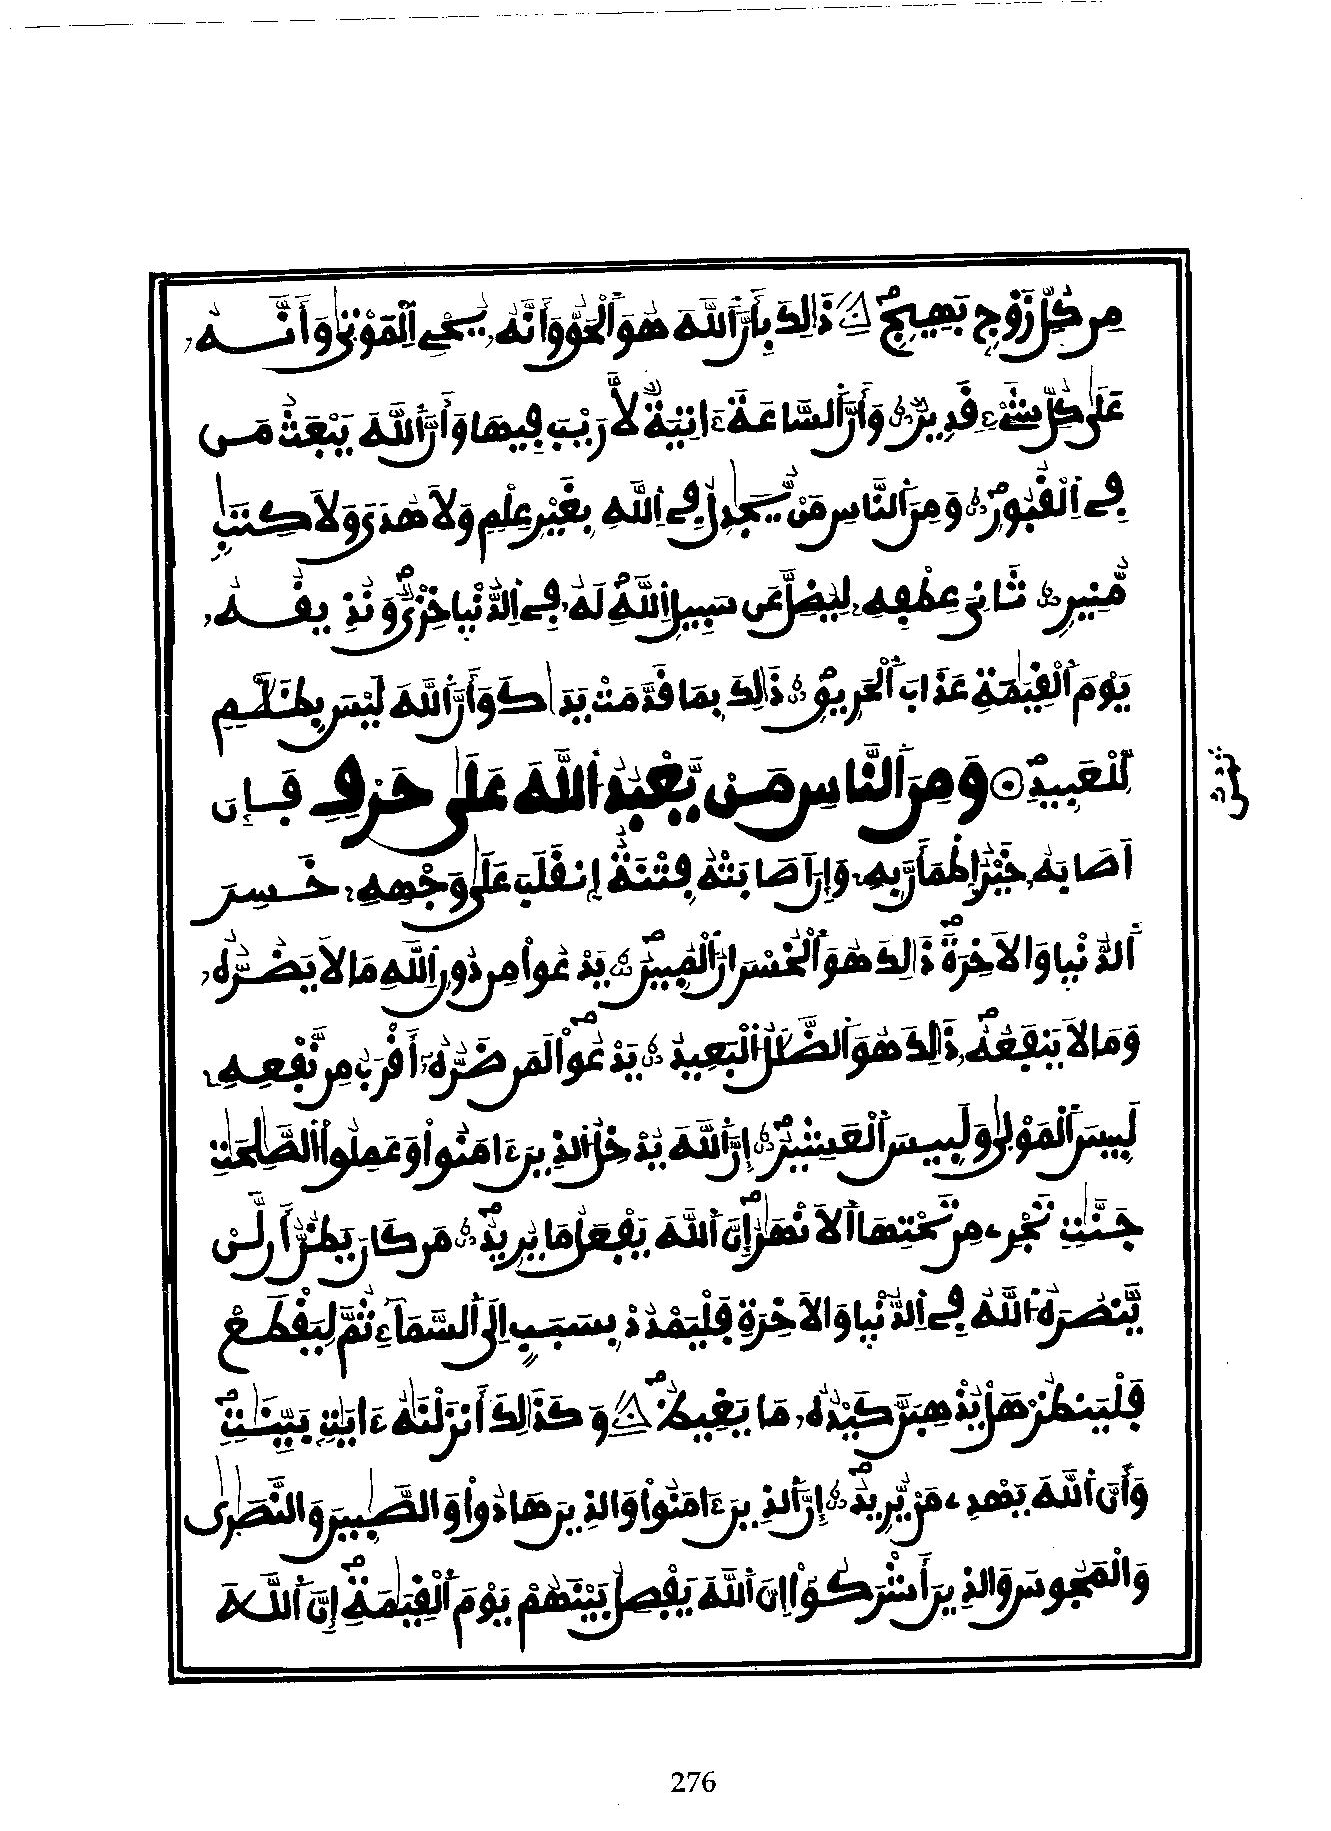 مِن كُلِّ زَوْجٍ بَهِيجٍ ذَٰلِكَ بِأَنَّ اَ۬للَّهَ هُوَ اَ۬لْحَقُّ وَأَنَّهُۥ يُحْيِ اِ۬لْمَوْتَىٰ وَأَنَّــهُۥ
عَلَىٰ كُلِّ شَےْءٖ قَدِيرٞ وَأَنَّ اَ۬لسَّاعَةَ ءَاتِيَةٞ لَّا رَيْبَ فِيهَا وَأَنَّ اَ۬للَّهَ يَبْعَثُ مَن
فِے اِ۬لْقُبُورِ وَمِنَ اَ۬لنَّاسِ مَنْ يُّجَٰدِلُ فِے اِ۬للَّهِ بِغَيْرِ عِلْمٖ وَلَا هُدىٗ وَلَا كِتَٰبٖ
مُّنِيرٖ ثَانِيَ عِطْفِهِۦ لِيُضِلَّ عَن سَبِيلِ اِ۬للَّهِ لَهُۥ فِے اِ۬لدُّنْيَا خِزْيٞ وَنُذِيقُــهُۥ
يَوْمَ اَ۬لْقِيَٰمَةِ عَذَابَ اَ۬لْحَرِيقِ ذَٰلِكَ بِمَا قَدَّمَتْ يَدَاكَ وَأَنَّ اَ۬للَّهَ لَيْسَ بِظَلَّٰمٖ
لِّلْعَبِيدِ وَمِنَ اَ۬لنَّاسِ مَنْ يَّعْبُدُ اُ۬للَّهَ عَلَىٰ حَرْفٖ فَــإِنَ
ثمن
اَصَابَهُۥ خَيْرٌ اِ۪طْمَأَنَّ بِهِۦ وَإِنَ اَصَابَتْهُ فِتْنَةٌ اِ۪نقَلَبَ عَلَىٰ وَجْهِهِۦ خَــسِرَ
اَ۬لدُّنْيَا وَالَاخِرَةَ ذَٰلِكَ هُوَ اَ۬لْخُسْرَانُ اُ۬لْمُبِينُ يَدْعُواْ مِن دُونِ اِ۬للَّهِ مَا لَا يَضُرُّهُۥ
وَمَا لَا يَنفَعُهُۥ ذَٰلِكَ هُوَ اَ۬لضَّلَٰلُ اُ۬لْبَعِيدُ يَدْعُواْ لَمَن ضَرُّهُۥٓ أَقْرَبُ مِن نَّفْعِهِۦ
لَبِيسَ اَ۬لْمَوْلَىٰ وَلَبِيسَ اَ۬لْعَشِيرُ إِنَّ اَ۬للَّهَ يُدْخِلُ اُ۬لذِينَ ءَامَنُواْ وَعَمِلُواْ اُ۬لصَّٰلِحَٰتِ
جَنَّٰتٖ تَجْرِے مِن تَحْتِهَا اَ۬لَانْهَٰرُ إِنَّ اَ۬للَّهَ يَفْعَلُ مَا يُرِيدُ مَن كَانَ يَظُنُّ أَن لَّنْ
يَّنصُرَهُ اُ۬للَّهُ فِے اِ۬لدُّنْيَا وَالَاخِرَةِ فَلْيَمْدُدْ بِسَبَبٍ اِلَى اَ۬لسَّمَآءِ ثُمَّ لِيَقْطَعْ
فَلْيَنظُرْ هَلْ يُذْهِبَنَّ كَيْدُهُۥ مَا يَغِيظُ وَكَذَٰلِكَ أَنزَلْنَٰهُ ءَايَٰتِۢ بَيِّنَٰتٖ
وَأَنَّ اَ۬للَّهَ يَهْدِے مَنْ يُّرِيدُ إِنَّ اَ۬لذِينَ ءَامَنُواْ وَالذِينَ هَادُواْ وَالصَّٰبِينَ وَالنَّصَٰرَىٰ
وَالْمَجُوسَ وَالذِينَ أَشْرَكُوٓاْ إِنَّ اَ۬للَّهَ يَفْصِلُ بَيْنَهُمْ يَوْمَ اَ۬لْقِيَٰمَةِ إِنَّ اَ۬للَّــهَ
276